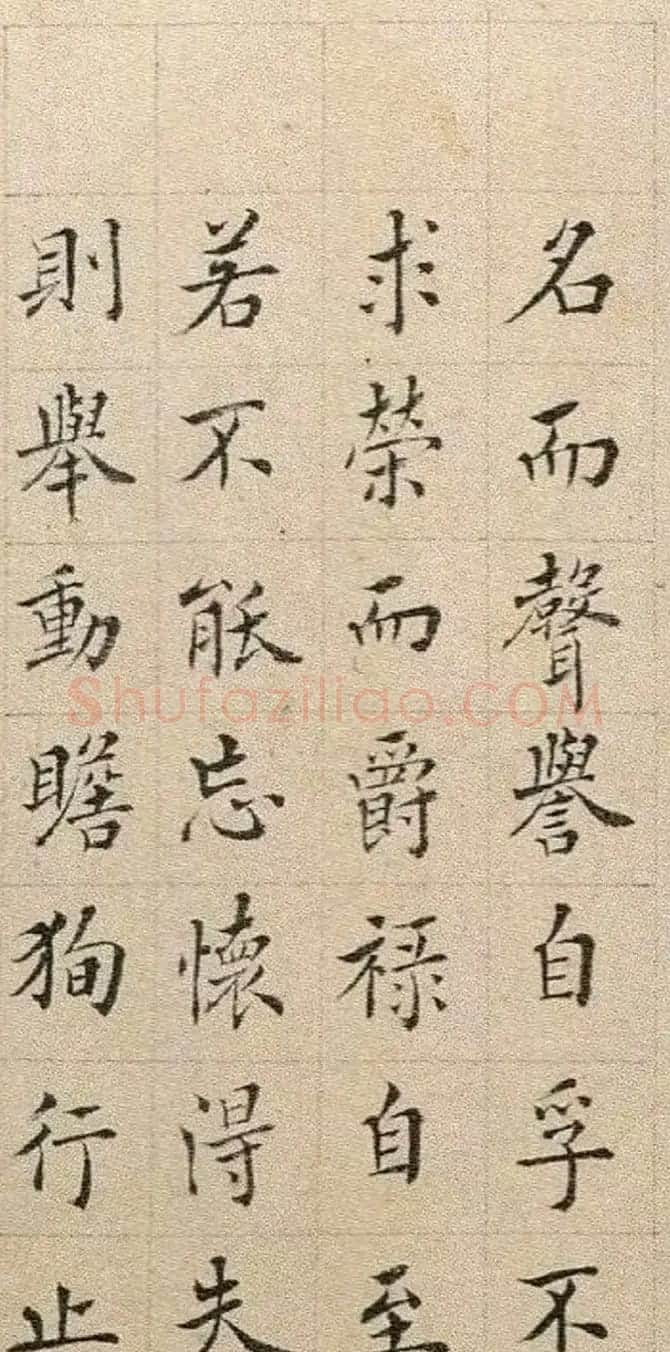 名而聲譽自孚不
求榮而爵禄自至
若不能忘懷得失
則舉動瞻狥行止
Shufaziliao.COM